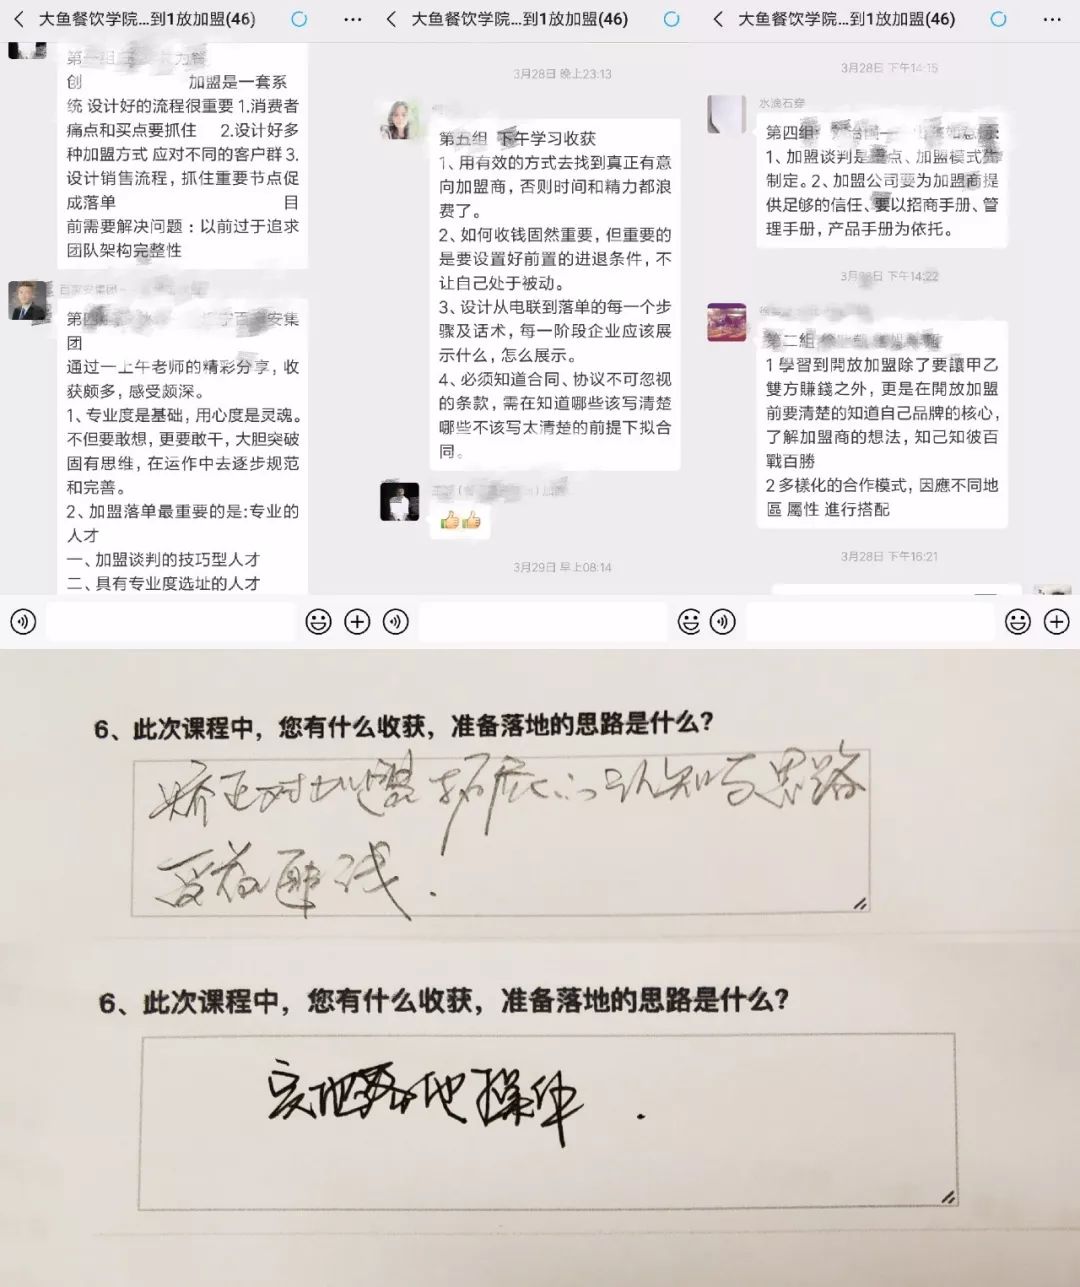 大鱼餐饮学院...到1放加盟(46)
第一组
创 加盟是一套系
统 设计好的流程很重要 1.消费者
痛点和买点要抓住 2.设计好多
种加盟方式 应对不同的客户群 3.
设计销售流程，抓住重要节点促
成落单 目
前需要解决问题：以前过于追求
团队架构完整性
百家安集团
第四
团
通过一上午老师的精彩分享，收
获颇多，感受颇深。
1、专业度是基础，用心度是灵魂。
不但要敢想，更要敢干，大胆突破
固有思维，在运作中去逐步规范
和完善。
2、加盟落单最重要的是:专业的
人才
一、加盟谈判的技巧型人才
二、具有专业度选址的人才
大鱼餐饮学院...到1放加盟(46)
3月28日 晚上23:13
第五组 下午学习收获
1、用有效的方式去找到真正有意
向加盟商，否则时间和精力都浪
费了。
2、如何收钱固然重要，但重要的
是要设置好前置的进退条件，不
让自己处于被动。
3、设计从电联到落单的每一个步
骤及话术，每一阶段企业应该展
示什么，怎么展示。
4、必须知道合同、协议不可忽视
的条款，需在知道哪些该写清楚
哪些不该写太清楚的前提下拟合
同。
3月29日 早上08:14
大鱼餐饮学院...到1放加盟(46)
3月28日 下午14:15
水滴石穿
第四组
1、加盟谈判是重点、加盟模式
制定。2、加盟公司要为加盟商提
供足够的信任、要以招商手册、管
理手册，产品手册为依托。
3月28日 下午14:22
第二組
1 學習到開放加盟除了要讓甲乙
雙方賺錢之外，更是在開放加盟
前要清楚的知道自己品牌的核心，
了解加盟商的想法，知己知彼百
戰百勝
2 多樣化的合作模式，因應不同地
區 屬性 進行搭配
3月28日 下午16:21
6、此次课程中，您有什么收获，准备落地的思路是什么？
矫正对加盟拓展的认知与思路
受益匪浅.
6、此次课程中，您有什么收获，准备落地的思路是什么？
实地落地操作.